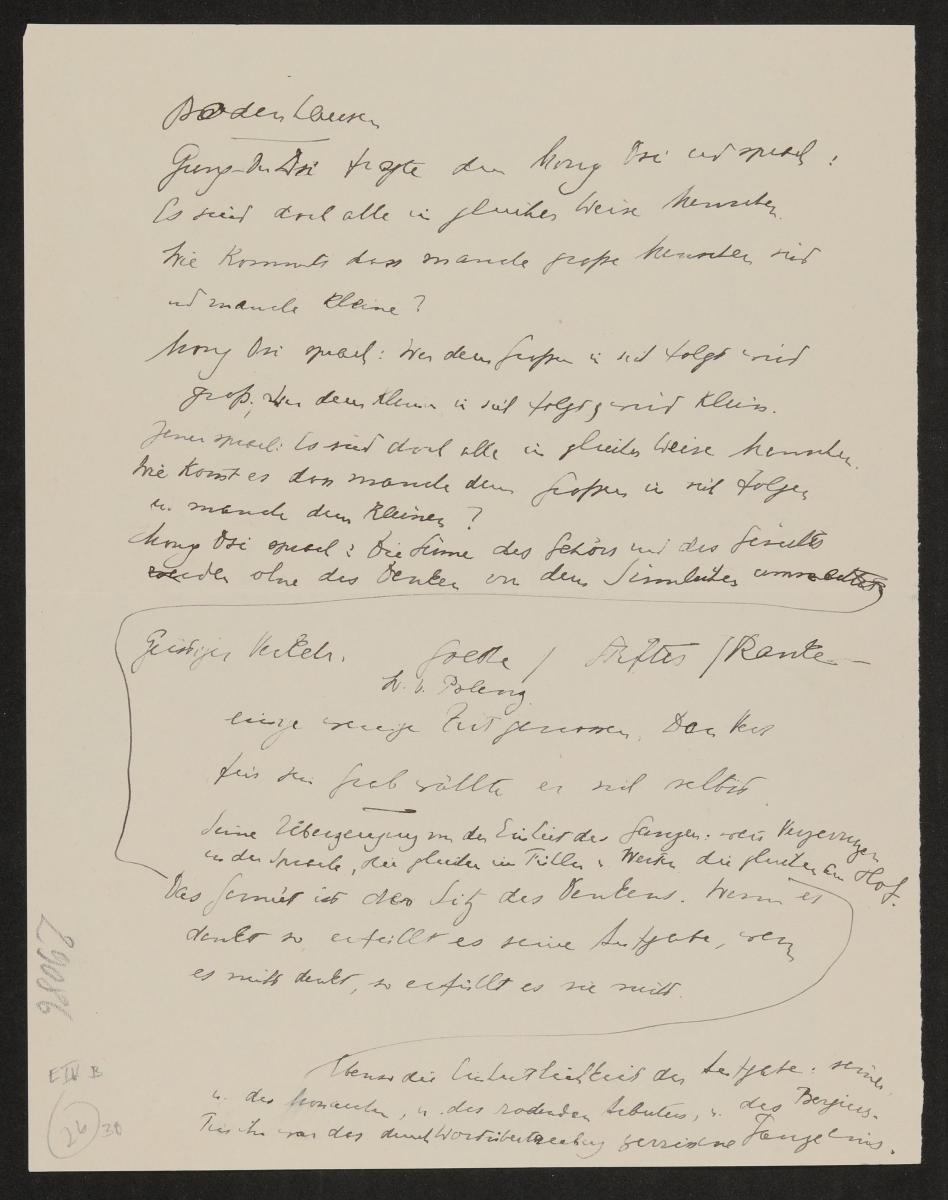 Bodenhausen
Gung-Du Dsi fragte den Mong Dsi und sprach:
Es sind doch alle in gleicher Weise Menschen.
Wie kommts dass manche große Menschen sind
und manche kleine?
Mong Dsi sprach: Wer dem Großen in sich folgt wird
groß, wer dem Kleinen in sich folgt, wird klein.
Jener sprach: Es sind doch alle in gleicher Weise Menschen.
Wie kommt es dass manche dem Großen in sich folgen
u. manche dem Kleinen?
Mong Dsi sprach: Die Sinne des Gehörs und des Gesichts
werden ohne das Denken von dem Sinnlichen
Geistiger Verkehr. Goethe / Stifter / Ranke –
einige wenige Zeitgenossen. Den Vers
für sein Grab wählte er sich selbst
Seine Überzeugung von der Einheit des Ganzen:
in der Sprache, die gleichen in u Werke die gleichen am Hof.
Das Gemüt ist der Sitz des Denkens. Wenn es
denkt so erfüllt es seine Aufgabe, wenn
es nicht denkt, so erfüllt es sie nicht.
Ebenso die Einheitlichkeit der Aufgabe: seiner
u. des Monarchen, u. des rodenden Arbeiters, u. des
war das durch zerrissene
29086
E IV B
26 30